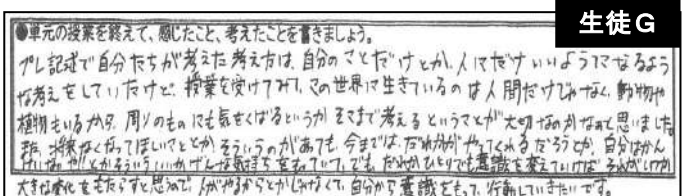 生徒G
●単元の授業を終えて、感じたこと、考えたことを書きましょう。
プレ記述で自分たちが考えた考え方は、自分のことだけとか、人にだけいいようになるよう
な考えをしていたけど、授業を受けてみて、この世界に生きているのは人間だけじゃなく、動物や
植物もいるから、周りのものにも気をくばるというかそこまで考えるということが大切なのかなぁと思いました。
将来なくなってほしいこととか、そういうのがあっても、今までは、だれかがやってくれるだろうとか、自分はかん
けいないやとかそういういいかげんな気持ちをもっていて、でも、だれかひとりでも意識を変えていけばそれがいつか
大きな変化をもたらすと思うので、人がやるからとかじゃなくて、自分から意識をもって、行動していきたいです。